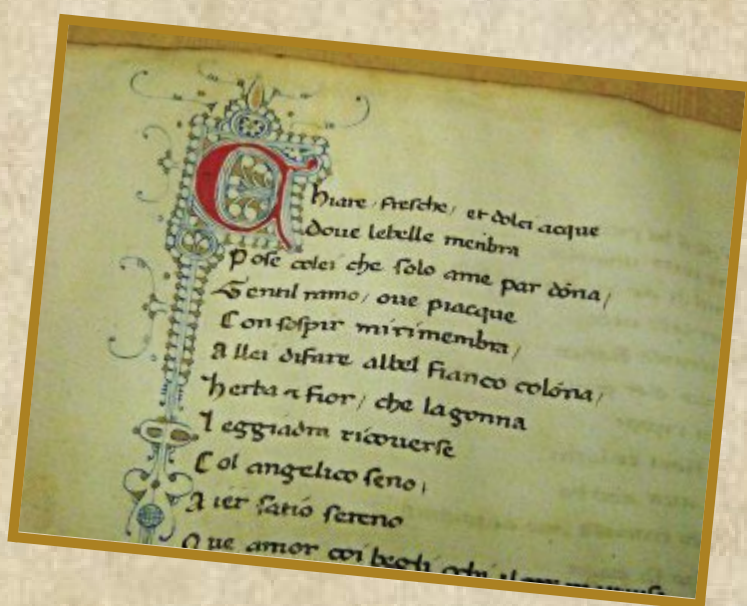 Chiare, fresche, et dolci acque
Doue lebelle menbra
Pose colei che solo ame par dóna,
Gentil ramo, oue piacque
Con sospir mirimembra,
A llei difare albel fianco colóna,
herba et fior, che lagonna
Leggiadra ricouerse
Col angelico seno,
A ier sacro sereno
Oue amor coi begli ochi